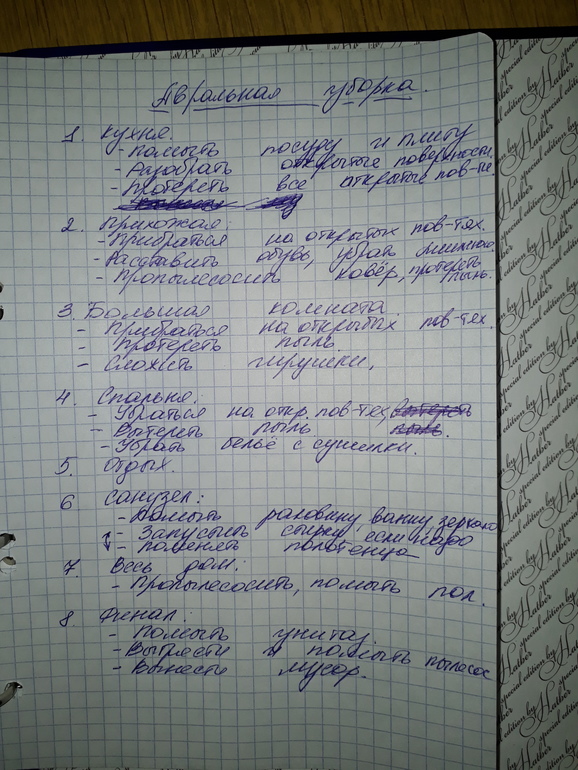 Авральная уборка.
1. Кухня.
- Помыть посуду и плиту
- Разобрать открытые поверхности
- Протереть все открытые пов-ти.
2. Прихожая:
- Прибраться на открытых пов-тях.
- Расставить обувь, убрать лишнюю.
- Пропылесосить ковёр, протереть пыль.
3. Большая комната.
- Прибраться на открытых пов-тях.
- Протереть пыль.
- Сложить игрушки.
4. Спальня.
- Убраться на откр. пов-тях,
- Вытереть пыль
- Убрать бельё с сушилки.
5. Отдых.
6 Санузел:
- Помыть раковину ванну зеркало
- Запустить стирку если надо
- Поменять полотенца
7. Весь дом:
- Пропылесосить, помыть пол.
8 Финал:
- Помыть унитаз.
- Вытрясти и помыть пылесос
- Вынести мусор.
special edition by Hatber